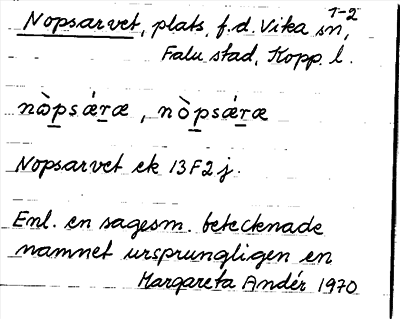 1-2
Nopsarvet, plats, f.d. Vika sn,
Falu stad, Kopp. l.
nòpsǽræ, nòpsǽræ
Nopsarvet ek 13F2j.
Enl. en sagesm. betecknade
namnet ursprungligen en
Margareta Andér 1970